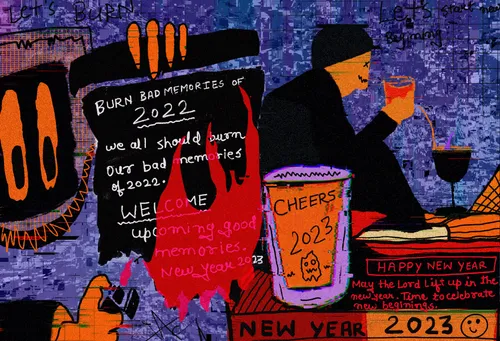 LET'S BURN
Let's start new
Beginning
BURN BAD MEMORIES OF
2022
we all should burn
Our bad memories
of 2022.
WELCOME
upcoming good
memories.
New Year 2023
CHEERS
2023
HAPPY NEW YEAR
May the Lord Lift up in the
new year. Time to celebrate
new beginings.
NEW YEAR 2023